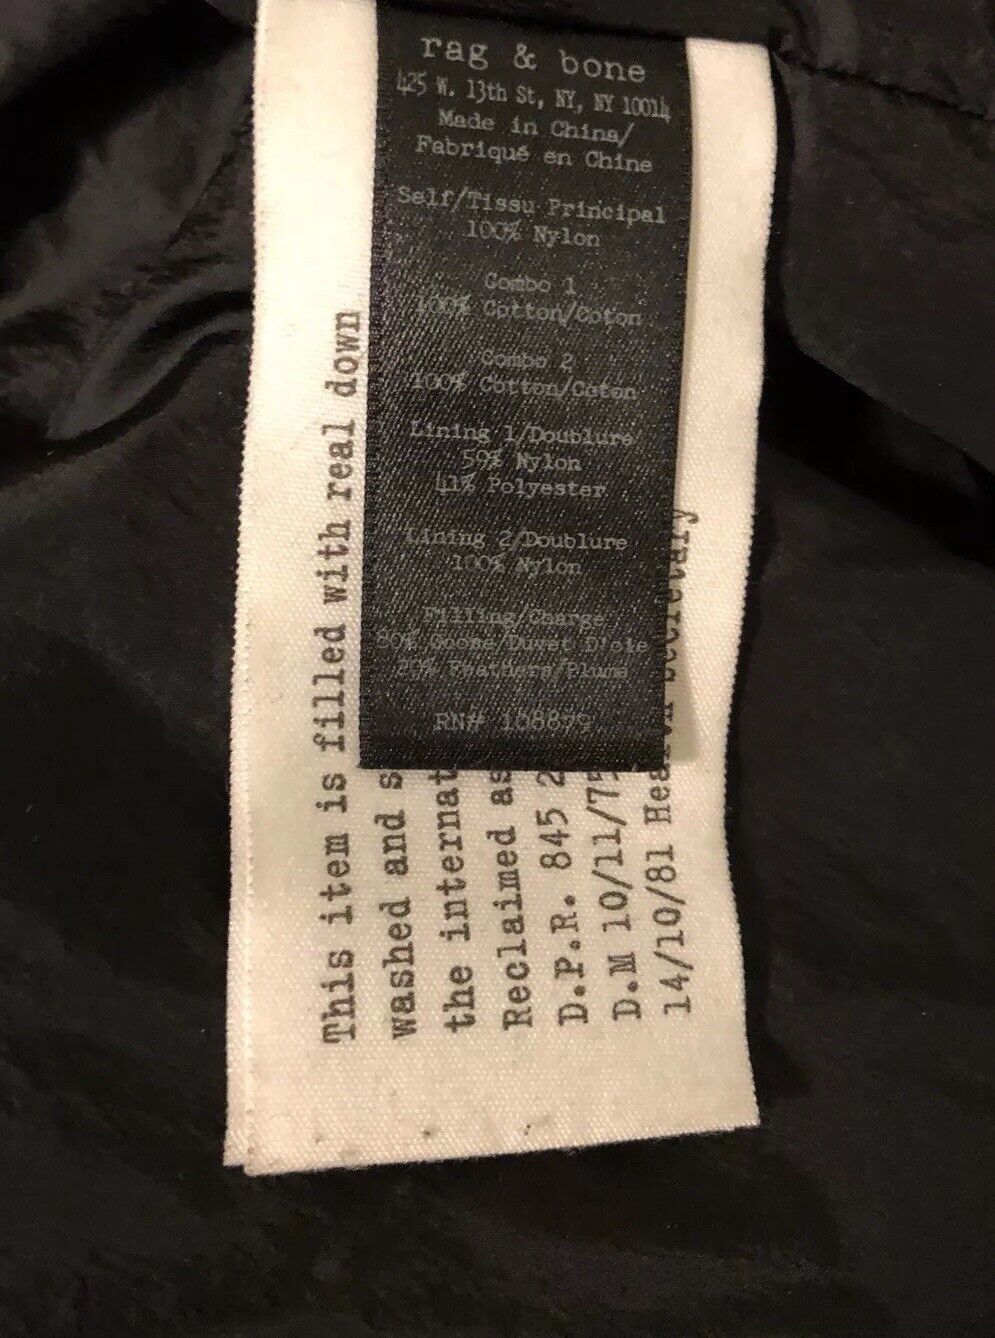 rag & bone
425 W. 13th St, NY, NY 10014
Made in China/
Fabriqué en Chine
Self/Tissu Principal
100% Nylon
Combo 1
100% Cotton/Coton
Combo 2
100% Cotton/Coton
Lining 1/Doublure
59% Nylon
41% Polyester
Lining 2/Doublure
100% Nylon
Filling/Charge
80% Goose/Duvet D'oie
20% Feathers/Plume
RN# 108879
This item is filled with real down
washed and s
the internat
Reclaimed as
D.P.R. 845 2
D.M 10/11/75
14/10/81